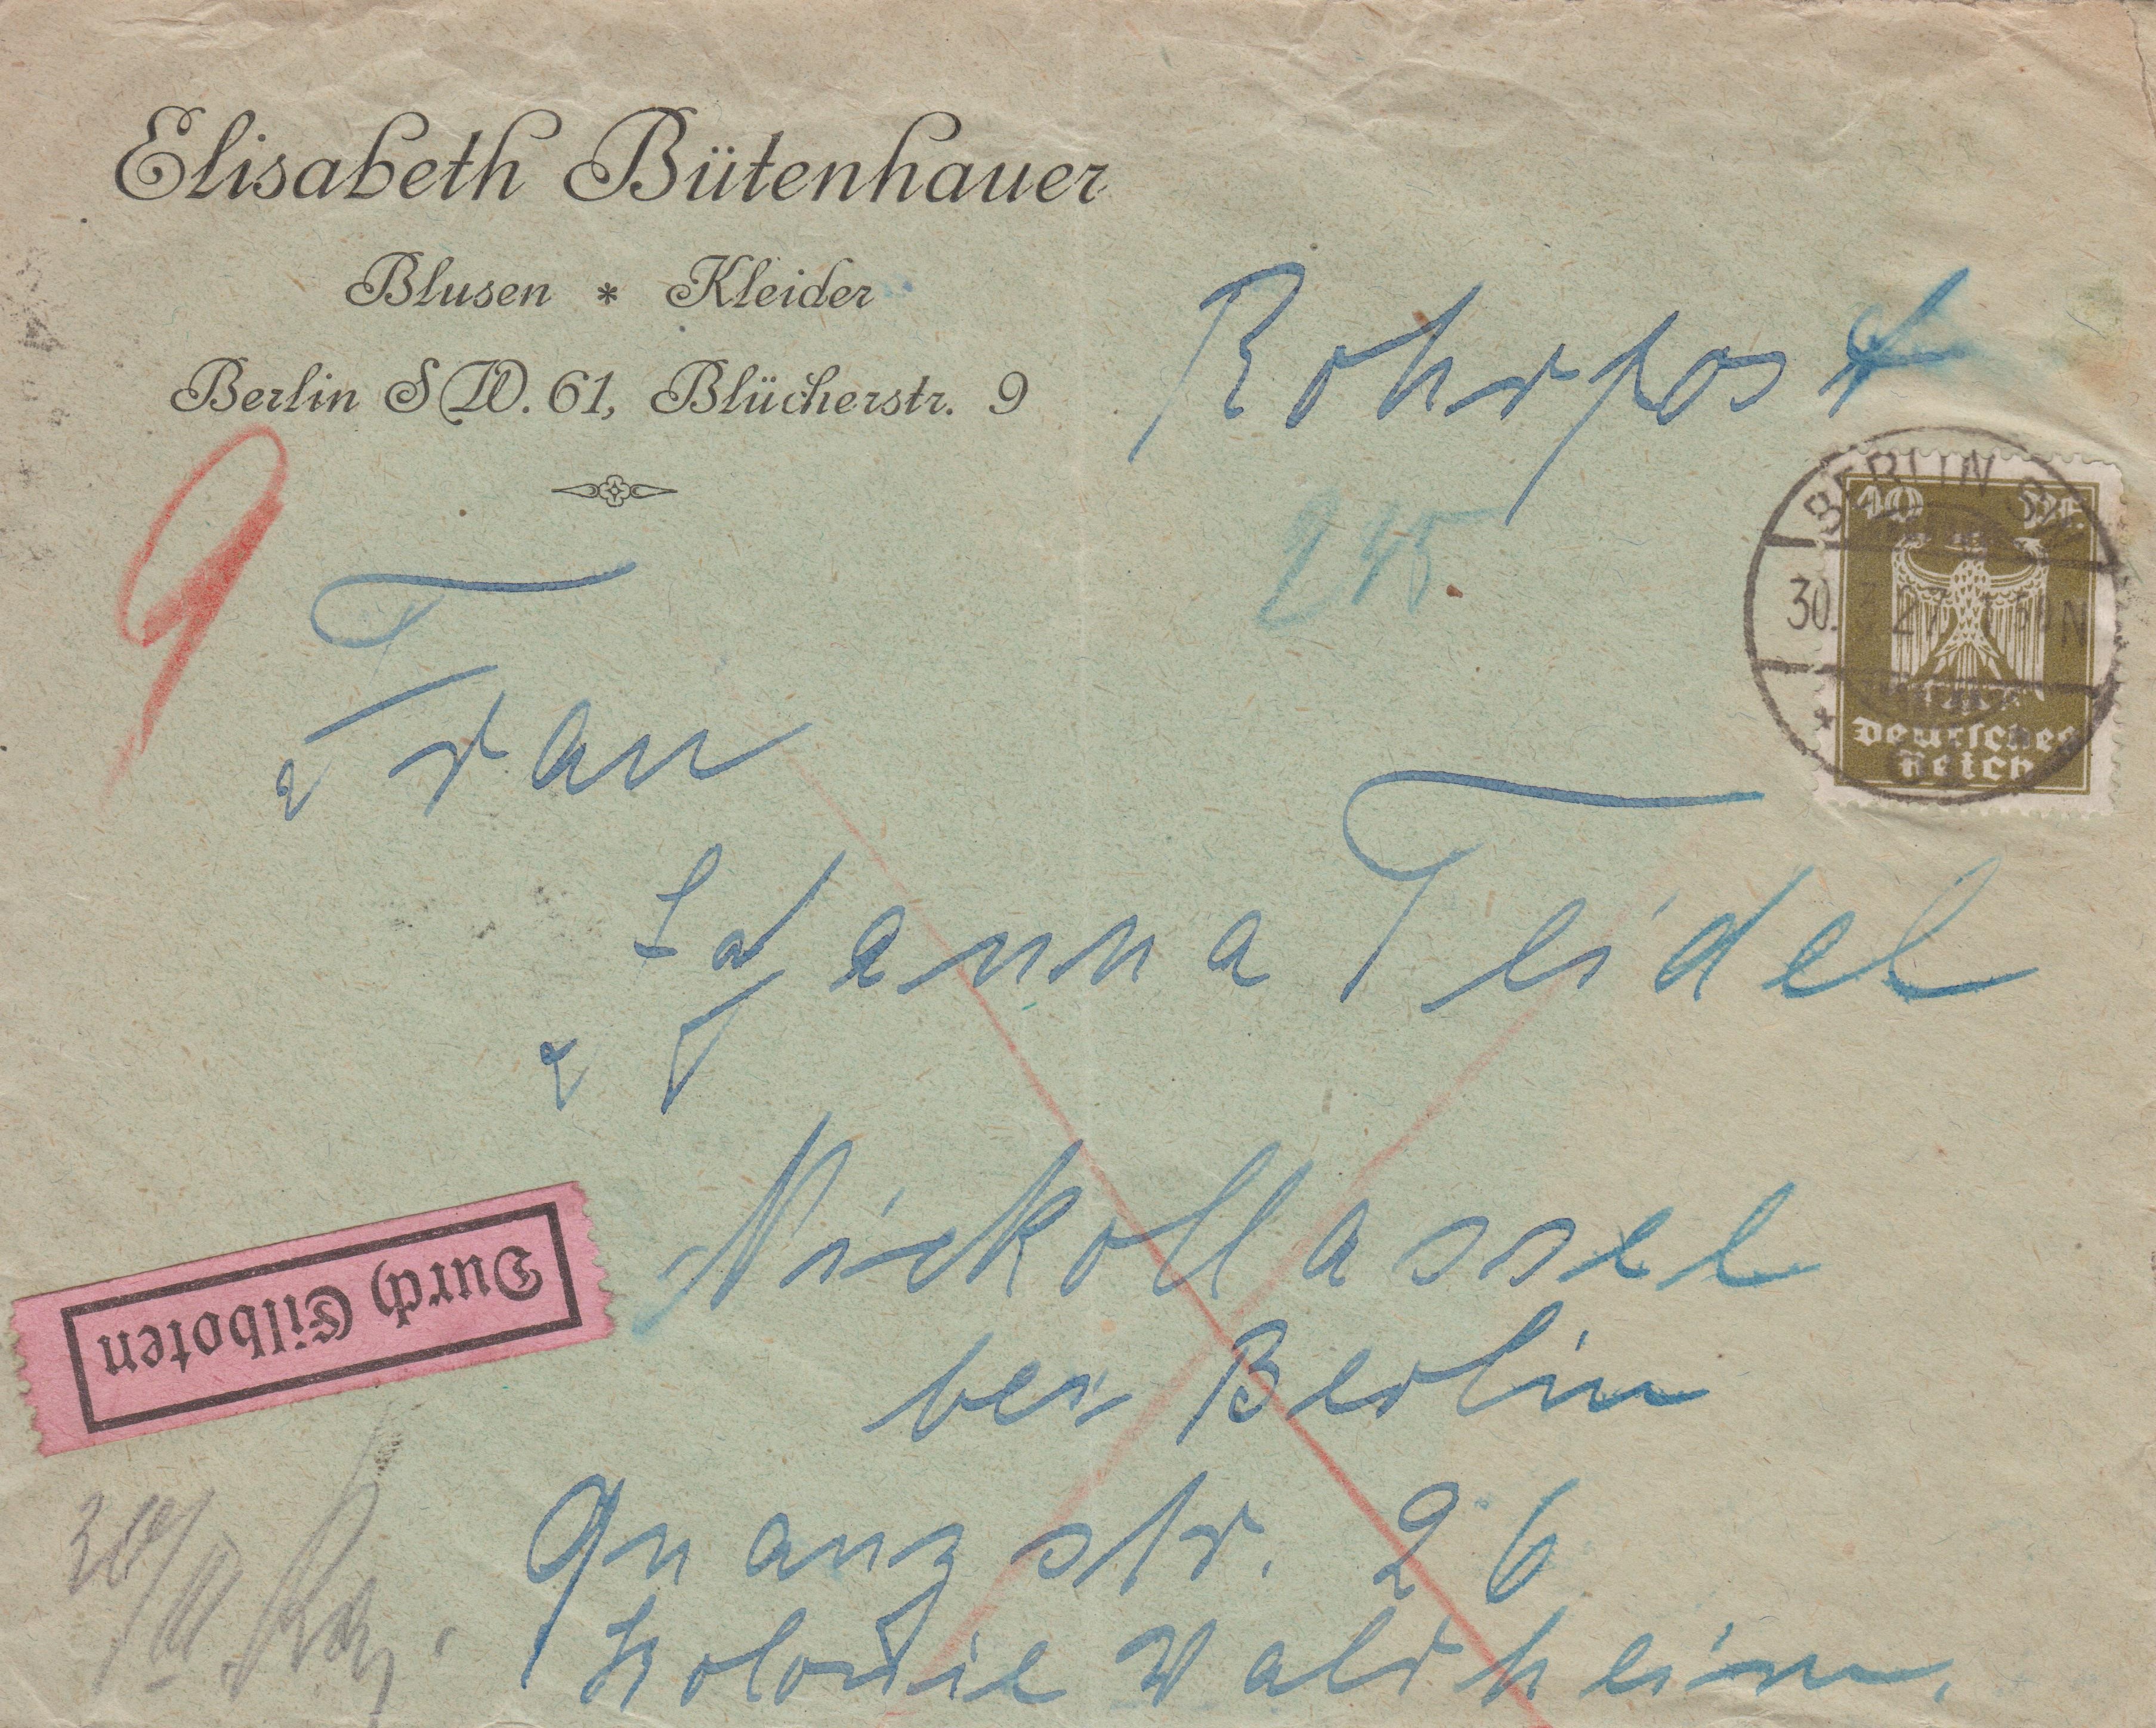 Elisabeth Bütenhauer
Blusen * Kleider
Berlin SW. 61, Blücherstr. 9
Rohrpost
9
245
BERLIN SW
30. 3. 27. N
40
Deutsches
Reich
Frau
Johanna Teidel
Nickollassee
bei Berlin
Quanzstr. 26
Kolonie Waldheim.
Durch Eilboten